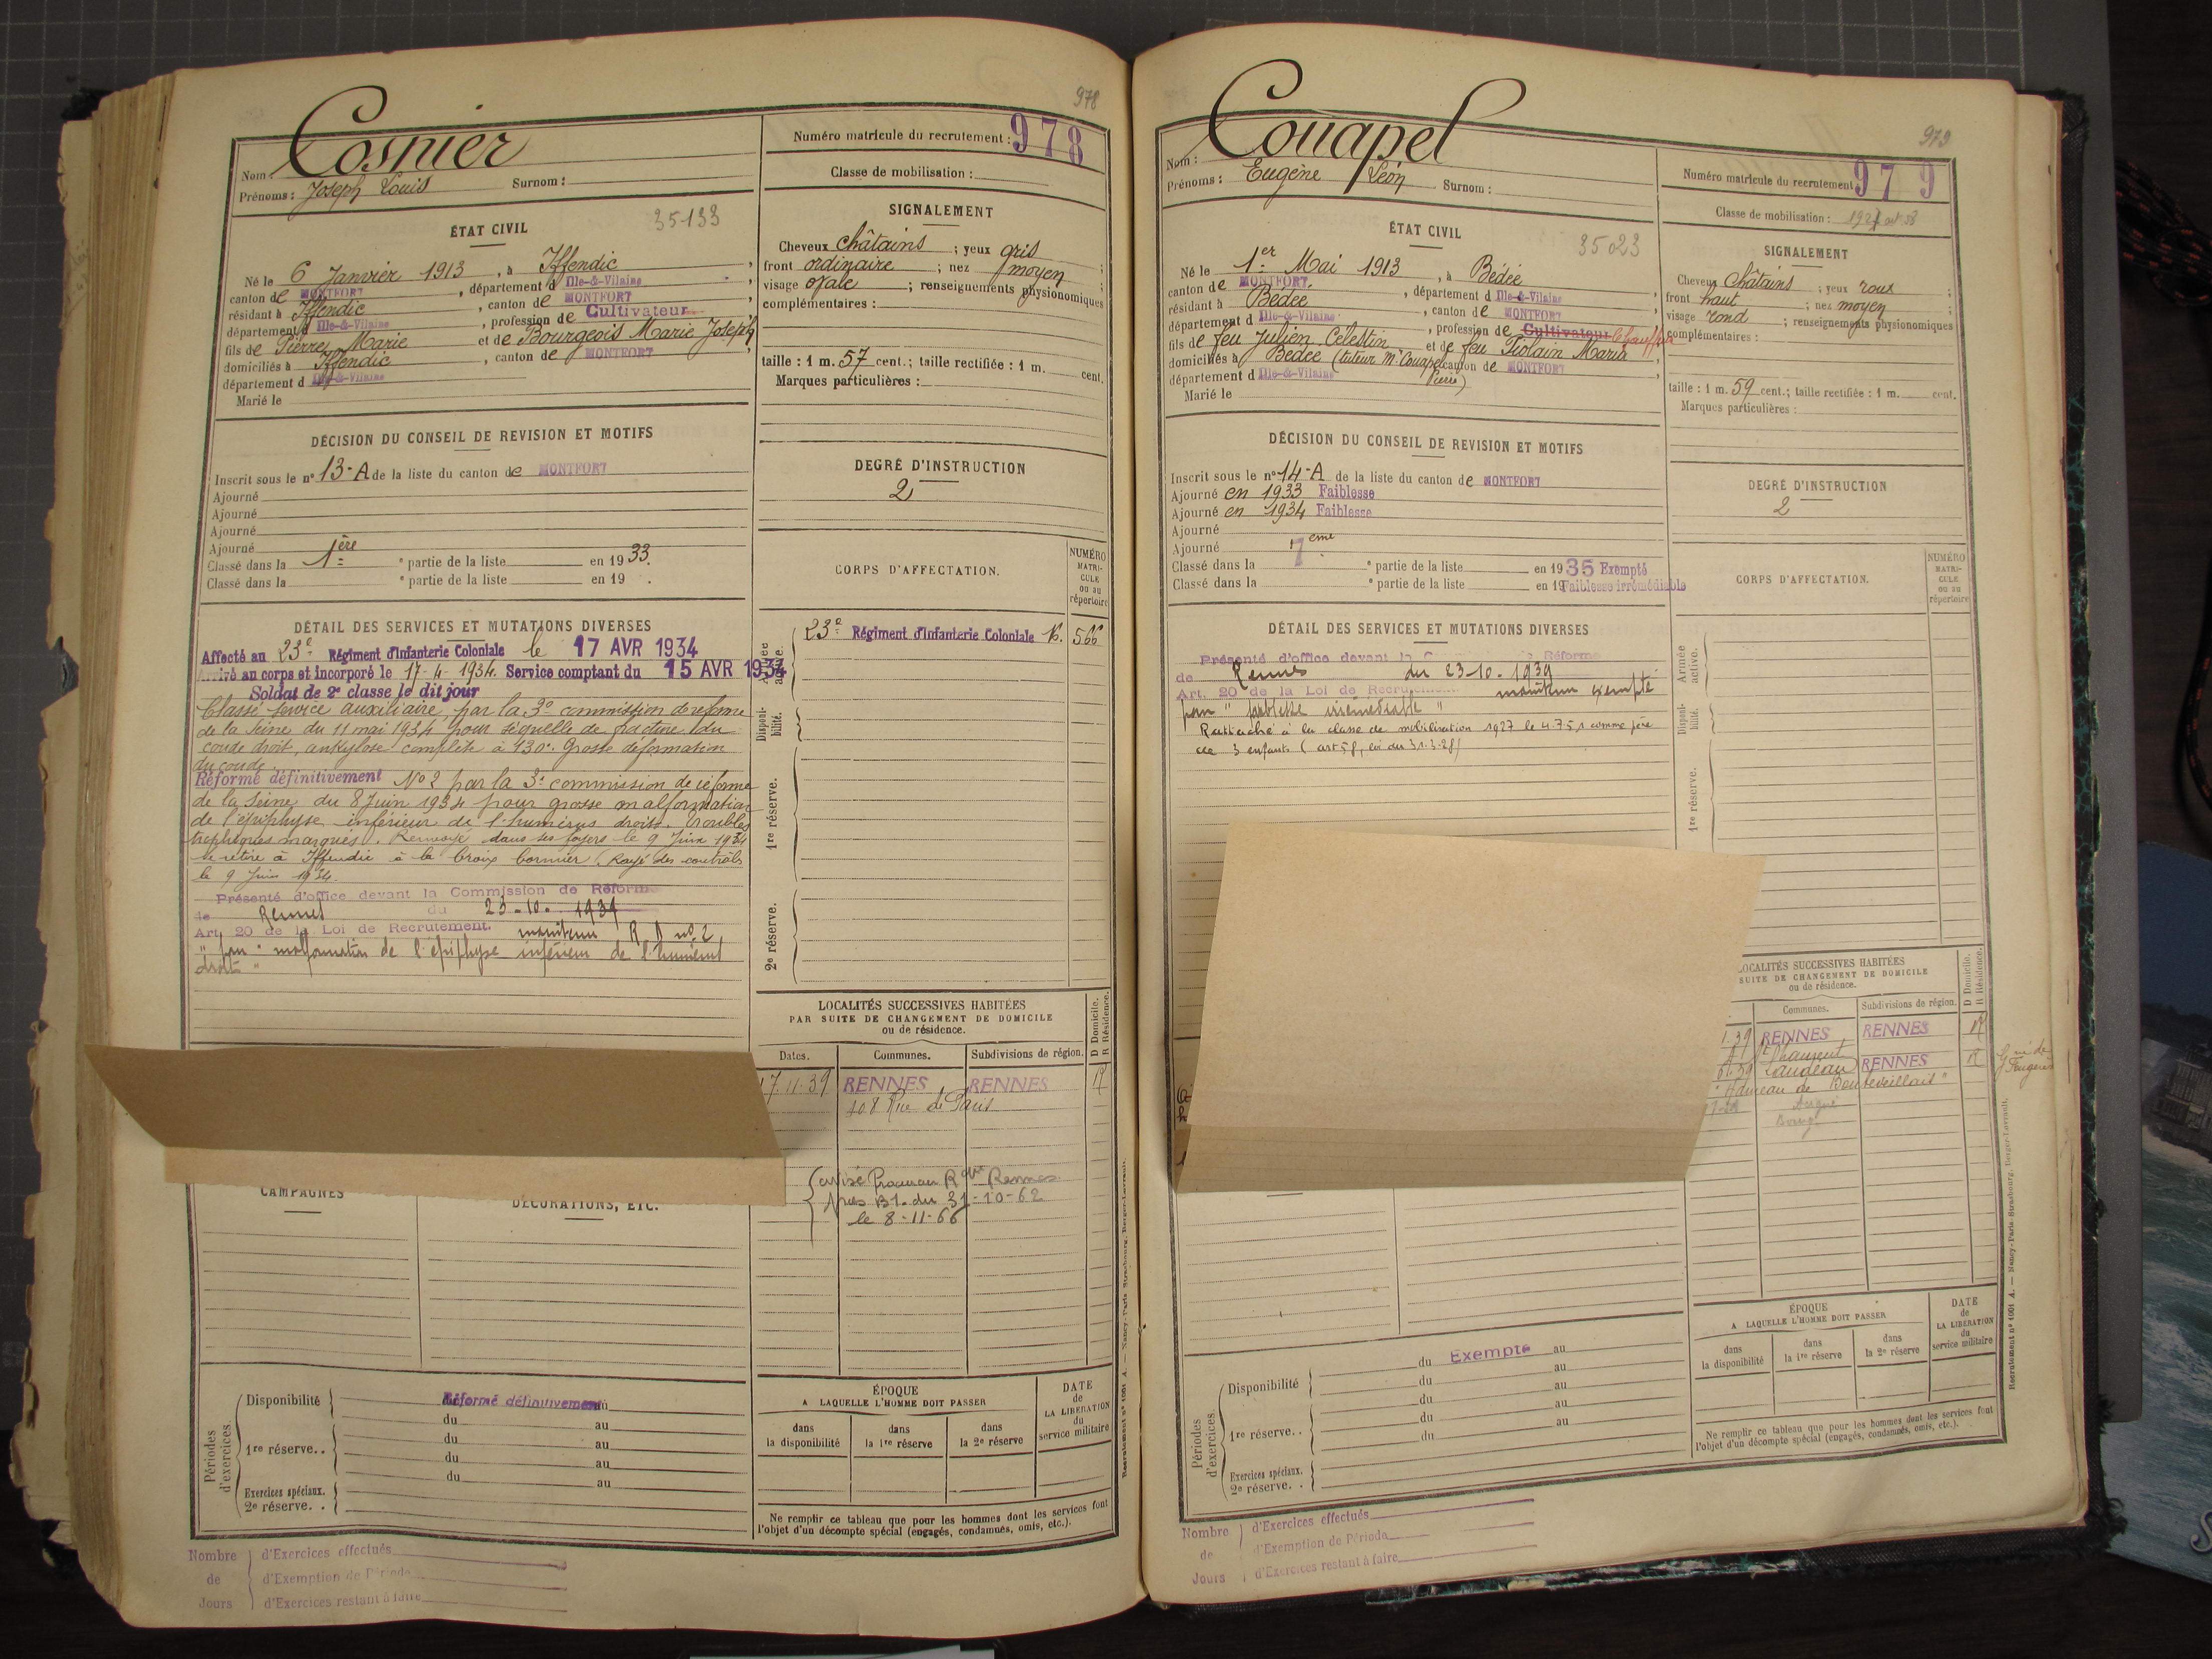 978
Nom : Cosnier
Prénoms : Joseph Louis Surnom :
Numéro matricule du recrutement : 978
Classe de mobilisation :
ÉTAT CIVIL
35-133
Né le 6 Janvier 1913, à Iffendic,
canton de MONTFORT, département d Ille-&-Vilaine,
résidant à Iffendic, canton de MONTFORT,
département d Ille-&-Vilaine, profession de Cultivateur
fils de Pierre Marie et de Bourgeois Marie Joseph
domiciliés à Iffendic, canton de MONTFORT,
département d Ille-&-Vilaine
Marié le
SIGNALEMENT
Cheveux châtains ; yeux gris ;
front ordinaire ; nez moyen ;
visage ovale ; renseignements physionomiques
complémentaires :
taille : 1 m. 57 cent.; taille rectifiée : 1 m. cent.
Marques particulières :
DÉCISION DU CONSEIL DE REVISION ET MOTIFS
Inscrit sous le n° 13-A de la liste du canton de MONTFORT
Ajourné
Ajourné
Ajourné
Ajourné
Classé dans la 1ère partie de la liste en 1933.
Classé dans la e partie de la liste en 19 .
DEGRÉ D'INSTRUCTION
2
CORPS D'AFFECTATION.
NUMÉRO MATRI-CULE ou au répertoire
Armée active.
23e Régiment d'Infanterie Coloniale 566
Disponi-bilité.
1re réserve.
2e réserve.
DÉTAIL DES SERVICES ET MUTATIONS DIVERSES
Affecté au 23e Régiment d'Infanterie Coloniale le 17 AVR 1934
Arrivé au corps et incorporé le 17-4-1934. Service comptant du 15 AVR 1934
Soldat de 2e classe le dit jour
Classé service auxiliaire par la 3e commission de réforme
de la Seine du 11 mai 1934 pour séquelle de fracture du
coude droit, ankylose complète à 130°. Grosse déformation
du coude.
Réformé définitivement N°2 par la 3e commission de réforme
de la Seine du 8 Juin 1934 pour grosse malformation
de l'épiphyse inférieur de l'humérus droit. Troubles
trophiques marqués. Renvoyé dans ses foyers le 9 Juin 1934
Se retire à Iffendic à la Croix Cormier. Rayé des contrôles
le 9 Juin 1934.
Présenté d'office devant la Commission de Réforme
de Rennes du 23-10-1939
Art. 20 de la Loi de Recrutement. maintenu R D n° 2
" pour " malformation de l'épiphyse inférieur de l'humérus
droit "
LOCALITÉS SUCCESSIVES HABITÉES
PAR SUITE DE CHANGEMENT DE DOMICILE
ou de résidence.
D Domicile. R Résidence.
Dates. Communes. Subdivisions de région.
17-11-39 RENNES RENNES R
108 Rue de Paris
avisé Procureur Rque Rennes
près B1. du 31-10-62
le 8-11-66
CAMPAGNES
DÉCORATIONS, ETC.
Périodes d'exercices.
Disponibilité Réformé définitivement au
du au
1re réserve.. du au
du au
Exercices spéciaux. du au
2e réserve. .
ÉPOQUE
A LAQUELLE L'HOMME DOIT PASSER
dans la disponibilité
dans la 1re réserve
dans la 2e réserve
DATE de LA LIBÉRATION du service militaire
Ne remplir ce tableau que pour les hommes dont les services font
l'objet d'un décompte spécial (engagés, condamnés, omis, etc.).
Recrutement n° 1001 A. — Nancy-Paris-Strasbourg, Berger-Levrault.
Nombre de Jours
d'Exercices effectués
d'Exemption de Période
d'Exercices restant à faire
979
Nom : Couapel
Prénoms : Eugène Léon Surnom :
Numéro matricule du recrutement 979
Classe de mobilisation : 1927
ÉTAT CIVIL
35023
Né le 1er Mai 1913, à Bédée
canton de MONTFORT, département d Ille-&-Vilaine,
résidant à Bédée, canton de MONTFORT,
département d Ille-&-Vilaine, profession de Cultivateur Chauffeur
fils de feu Julien Célestin et de feu Piolain Maria
domiciliés à Bédée (tuteur Mr Couapel Pierre) canton de MONTFORT,
département d Ille-&-Vilaine
Marié le
SIGNALEMENT
Cheveux châtains ; yeux roux ;
front haut ; nez moyen ;
visage rond ; renseignements physionomiques
complémentaires :
taille : 1 m. 59 cent.; taille rectifiée : 1 m. cent.
Marques particulières :
DÉCISION DU CONSEIL DE REVISION ET MOTIFS
Inscrit sous le n° 14-A de la liste du canton de MONTFORT
Ajourné en 1933 Faiblesse
Ajourné en 1934 Faiblesse
Ajourné
Ajourné
Classé dans la 7eme partie de la liste en 1935 Exempté
Classé dans la e partie de la liste en 19 Faiblesse irrémédiable
DEGRÉ D'INSTRUCTION
2
CORPS D'AFFECTATION.
NUMÉRO MATRI-CULE ou au répertoire
Armée active.
Disponi-bilité.
1re réserve.
DÉTAIL DES SERVICES ET MUTATIONS DIVERSES
Présenté d'office devant la C de Réforme
de Rennes du 23-10-1939
Art. 20 de la Loi de Recrutement maintenu exempté
pour " faiblesse irrémédiable "
Rattaché à la classe de mobilisation 1927 le 4.7.51 comme père
de 3 enfants (art 58, loi du 31.3.28)
LOCALITÉS SUCCESSIVES HABITÉES
SUITE DE CHANGEMENT DE DOMICILE
ou de résidence.
D Domicile. R Résidence.
Communes. Subdivisions de région.
1.39 RENNES RENNES R
St Laurent RENNES R
Landéan
"Hameau de Bouteveillais"
Bourg
Exempté
Périodes d'exercices.
du au
Disponibilité du au
du au
1re réserve.. du au
du
Exercices spéciaux.
2e réserve. .
ÉPOQUE
A LAQUELLE L'HOMME DOIT PASSER
dans la disponibilité
dans la 1re réserve
dans la 2e réserve
DATE de LA LIBÉRATION du service militaire
Ne remplir ce tableau que pour les hommes dont les services font
l'objet d'un décompte spécial (engagés, condamnés, omis, etc.).
Recrutement n° 1001 A. — Nancy-Paris-Strasbourg, Berger-Levrault.
Nombre de Jours
d'Exercices effectués
d'Exemption de Période
d'Exercices restant à faire